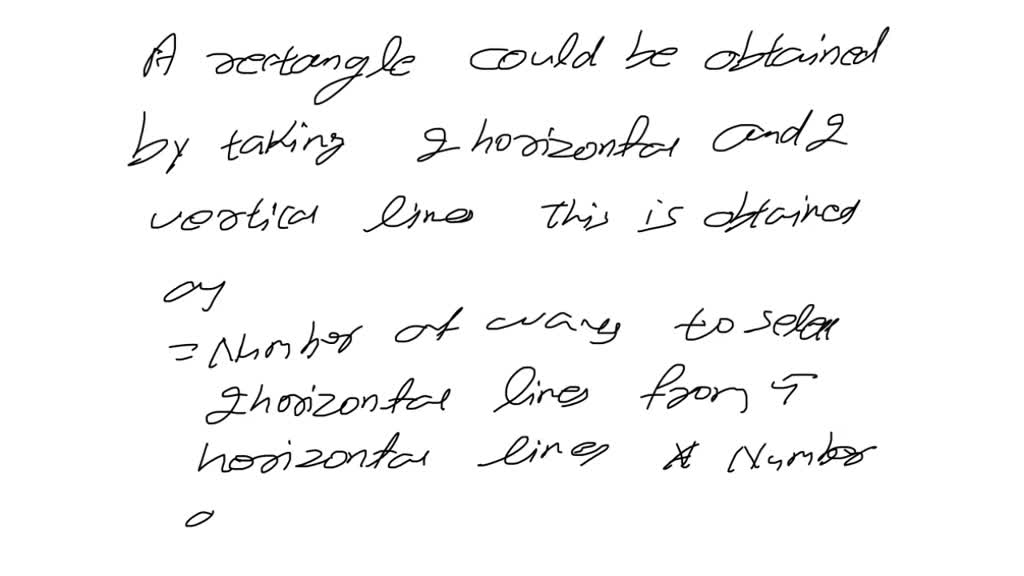 A rectangle could be obtained
by taking 2 horizontal and 2
vertical line this is obtained
as
= Number of ways to select
2 horizontal lines from 5
horizontal lines * Number
o